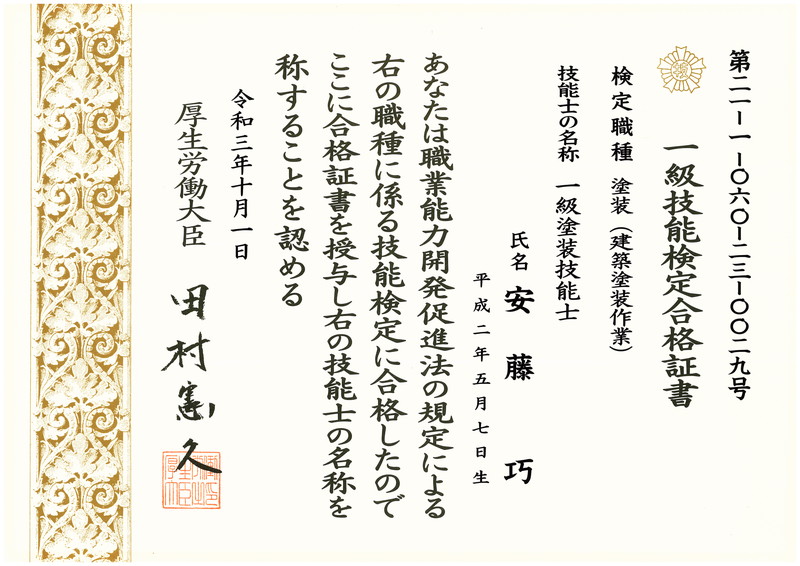 第二一ー一ー〇六〇ー二三ー〇〇二九号
一級技能検定合格証書
検定職種 塗装(建築塗装作業)
技能士の名称 一級塗装技能士
氏名 安藤 巧
平成二年五月七日生
あなたは職業能力開発促進法の規定による
右の職種に係る技能検定に合格したので
ここに合格証書を授与し右の技能士の名称を
称することを認める
令和三年十月一日
厚生労働大臣 田村憲久